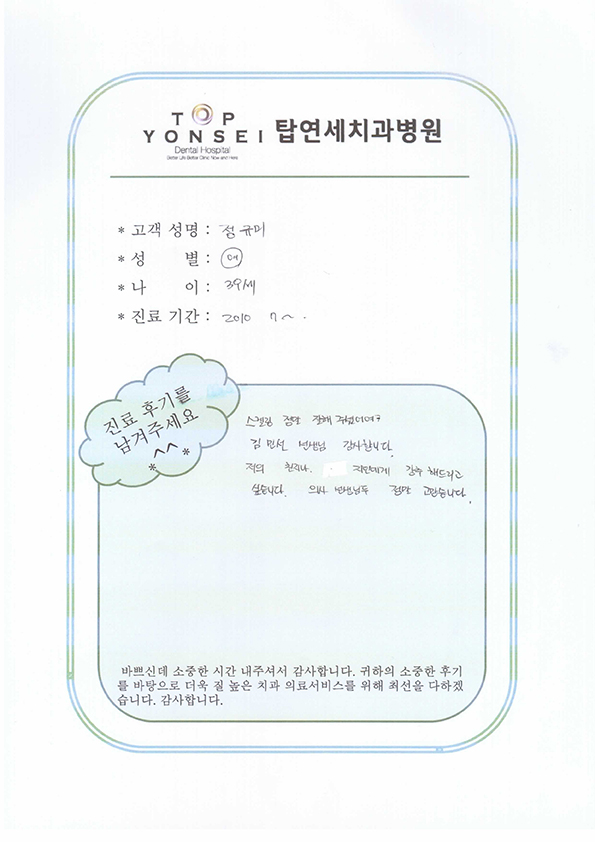 TOP
YONSEI 탑연세치과병원
Dental Hospital
Better Life Better Clinic Now and Here
* 고객 성명 : 정규미
* 성 별 : 여
* 나 이 : 39세
* 진료 기간 : 2010 7~.
진료 후기를
남겨주세요
* ^^ *
스켈링 정말 잘해 주셨어여
김민선 선생님 감사합니다.
저의 친지나 지인에게 강추 해드리고
싶습니다. 의사 선생님두 정말 고맙습니다.
바쁘신데 소중한 시간 내주셔서 감사합니다. 귀하의 소중한 후기
를 바탕으로 더욱 질 높은 치과 의료서비스를 위해 최선을 다하겠
습니다. 감사합니다.